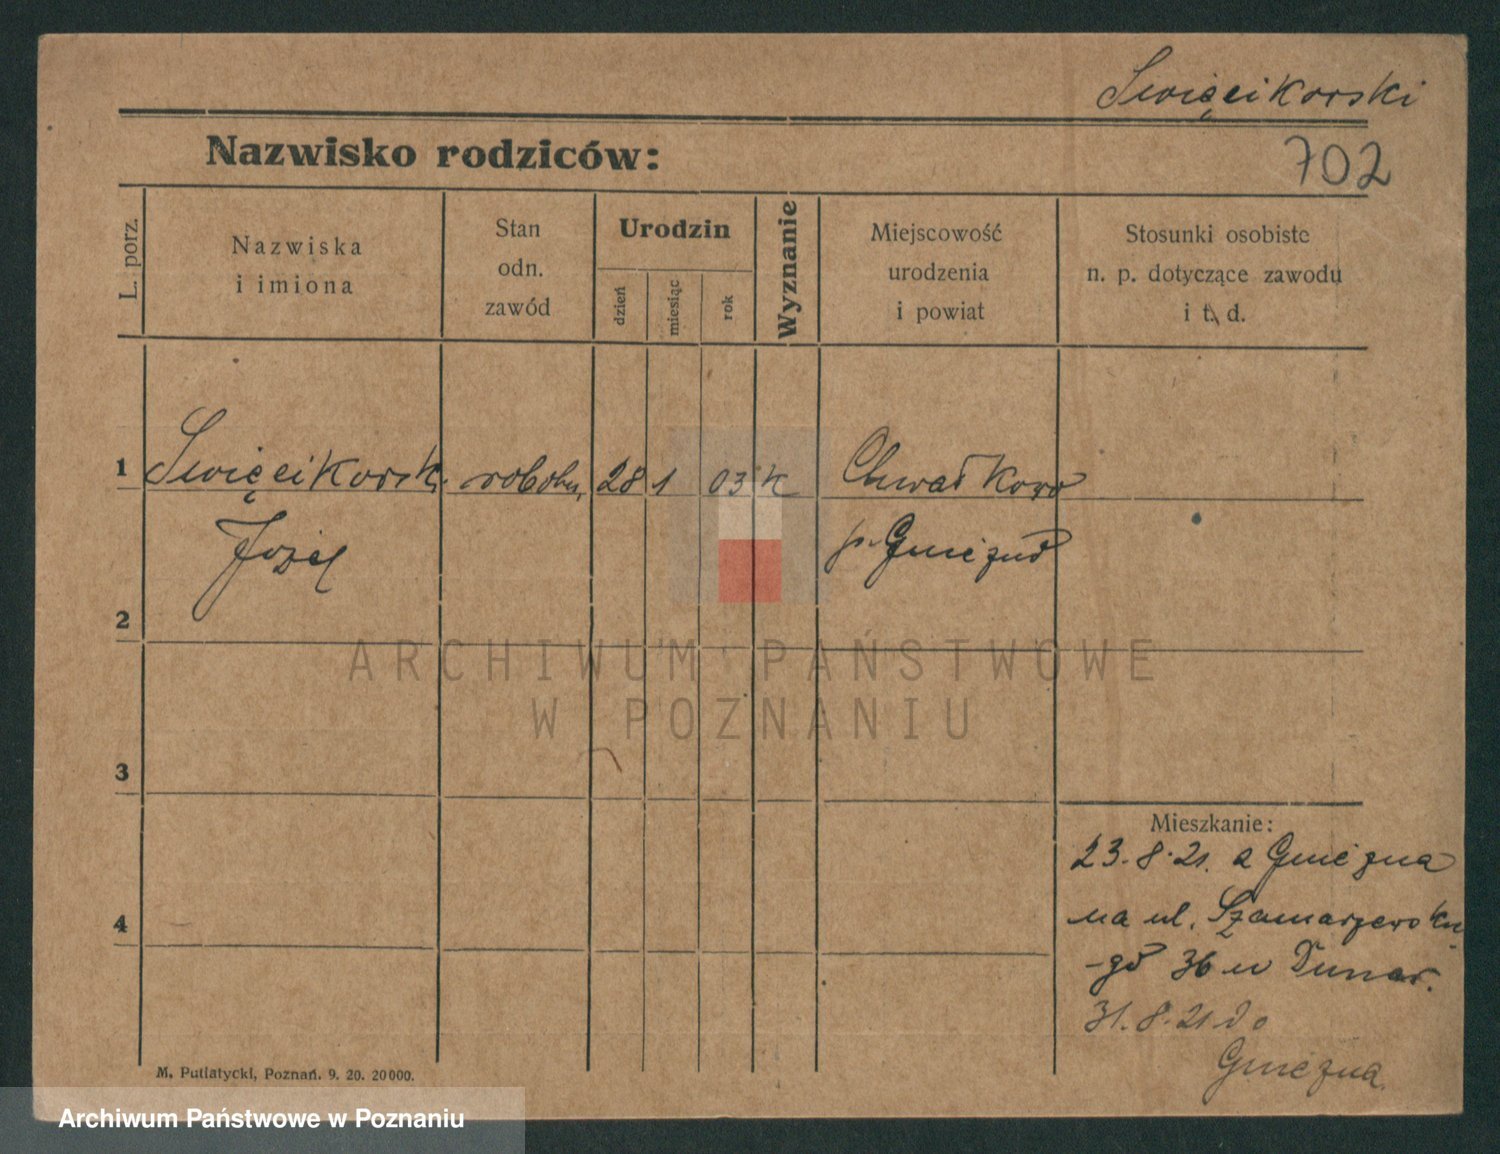 Święcikorski
702
Nazwisko rodziców:
L. porz.
Nazwiska
i imiona
Stan
odn.
zawód
Urodzin
dzień
miesiąc
rok
Wyznanie
Miejscowość
urodzenia
i powiat
Stosunki osobiste
n. p. dotyczące zawodu
i t. d.
1 Święcikorski robotn. 28 1 03 k Chwałkowo
Józef p. Gniezno
2
3
4
Mieszkanie:
23.8.21. z Gniezna
na ul. Szamarzewskie-
-go 36 u
31.8.21 do
Gniezna.
M. Putiatycki, Poznań. 9. 20. 20000.
ARCHIWUM PAŃSTWOWE
W POZNANIU
Archiwum Państwowe w Poznaniu